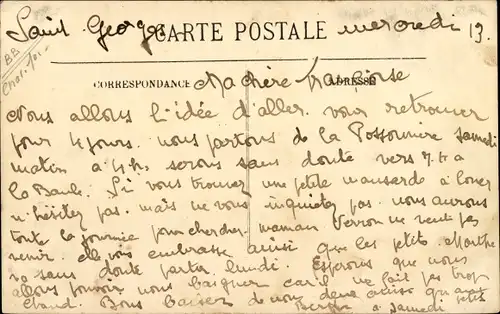 Saint Georges CARTE POSTALE mercredi 13.
CORRESPONDANCE Ma chère Françoise ADRESSE
Nous allons l'idée d'aller vous retrouver
pour 4 jours. nous partons de la Possonnière samedi
matin à 4 h. serons sans doute vers 7 h a
la Baule. Si vous trouvez une petite mansarde à louer
n'hésitez pas. mais ne vous inquietez pas nous aurons
toute la journée pour chercher. maman Verron ne veut pas
venir. elle vous embrasse ainsi que les petits
va sans doute partir lundi. Espérons que nous
allons pouvoir nous baigner car il ne fait pas trop
chaud. Bons baisers de nous deux ainsi qu'aux petits
à samedi